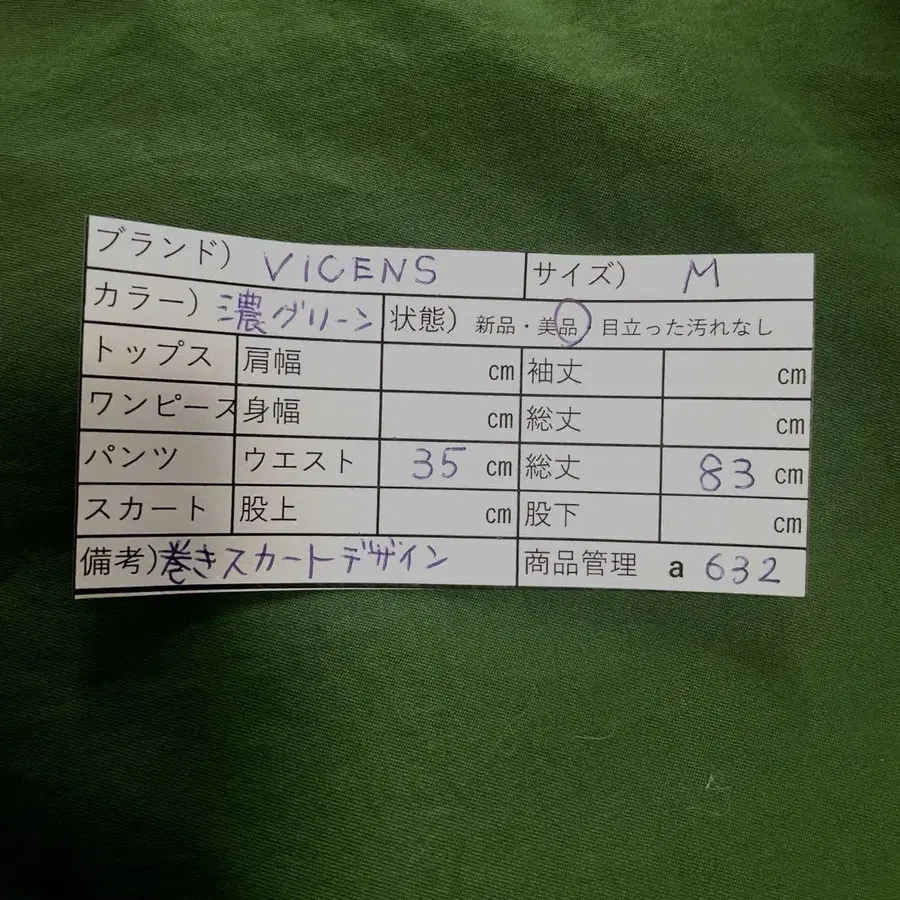 ブランド) VICENS サイズ) M
カラー) 濃グリーン 状態) 新品・美品・目立った汚れなし
トップス 肩幅 cm 袖丈 cm
ワンピース 身幅 cm 総丈 cm
パンツ ウエスト 35 cm 総丈 83 cm
スカート 股上 cm 股下 cm
備考) 巻きスカートデザイン 商品管理 a 632